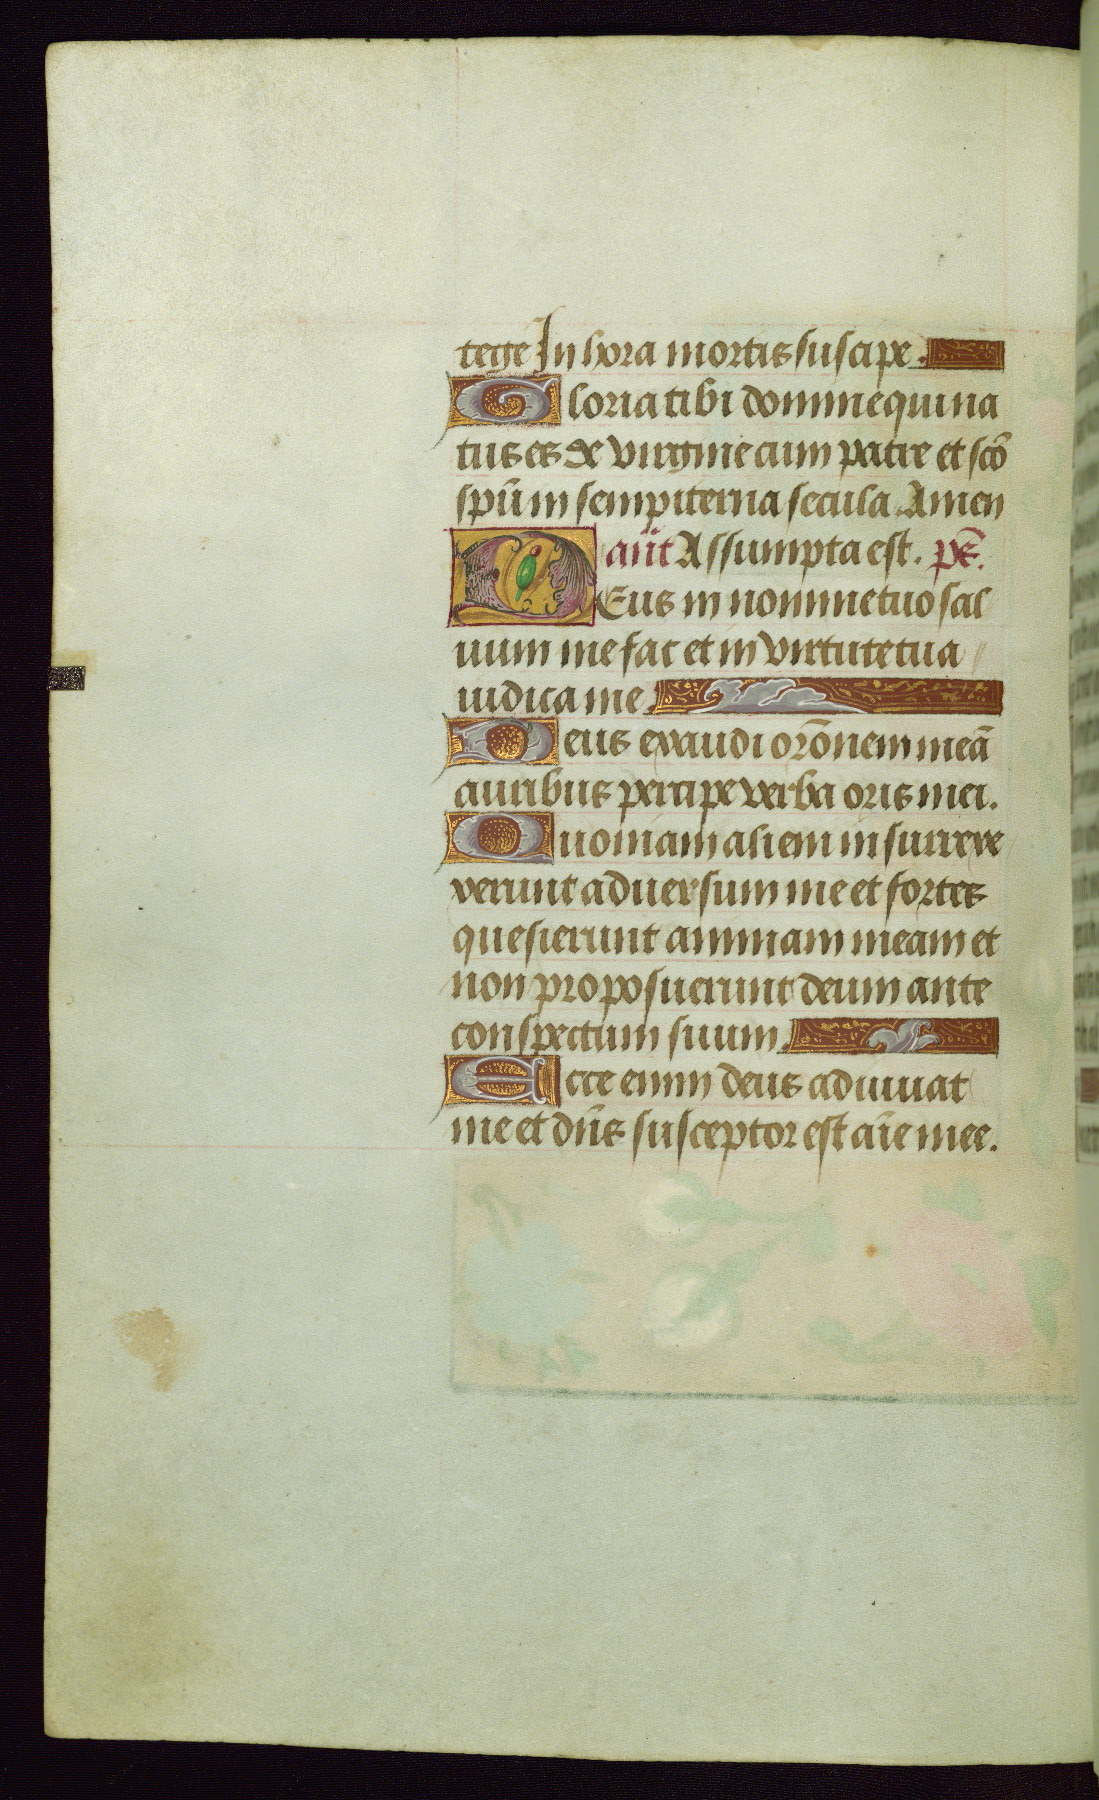 tege In hora mortis suscipe.
Gloria tibi domine qui na
tus es de virgine cum patre et scō
spū in sempiterna secula. Amen
añt Assumpta est. ps̄.
DEus in nomine tuo sal
uum me fac et in virtute tua
iudica me.
Deus exaudi orōnem meā
auribus percipe verba oris mei.
Quoniam alieni insurrexe
verunt aduersum me et fortes
quesierunt animam meam et
non proposuerunt deum ante
conspectum suum.
Ecce enim deus adiuuat
me et dñs susceptor est aīe mee.